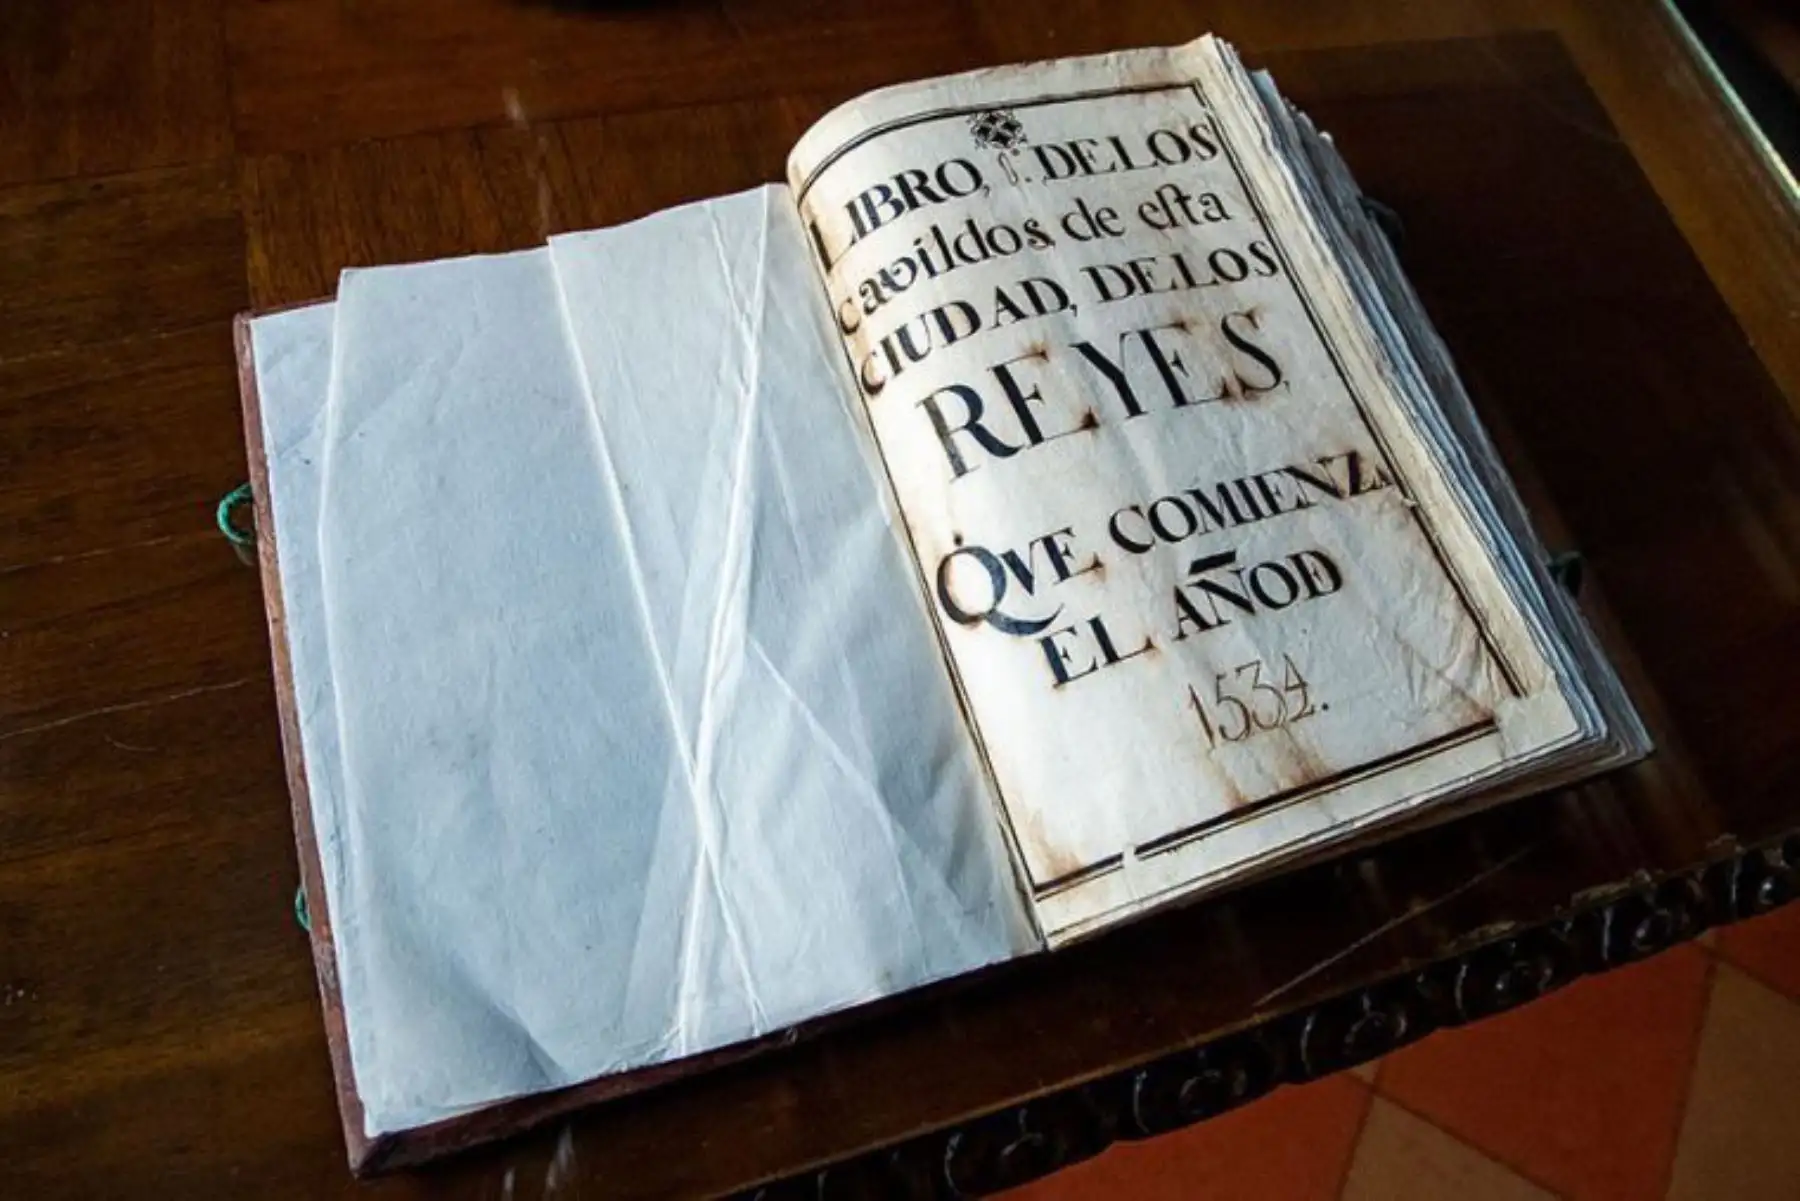 LIBRO, 1. DE LOS
cavildos de esta
CIUDAD, DE LOS
REYES,
QVE COMIENZA
EL AÑO DE
1534.